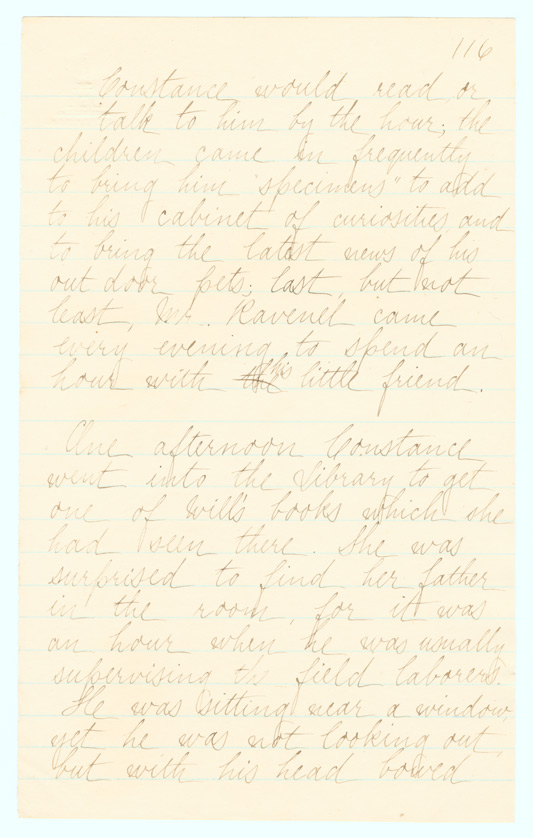 116
Constance would read, or
talk to him by the hour; the
children came in frequently
to bring him "specimens" to add
to his cabinet of curiosities, and
to bring the latest news of his
out door pets; last, but not
least, Mr. Ravenel came
every evening to spend an
hour with his little friend.
One afternoon Constance
went into the library to get
one of Will's books which she
had seen there. She was
surprised to find her father
in the room, for it was
an hour when he was usually
supervising the field laborers.
He was sitting near a window,
yet he was not looking out,
but with his head bowed